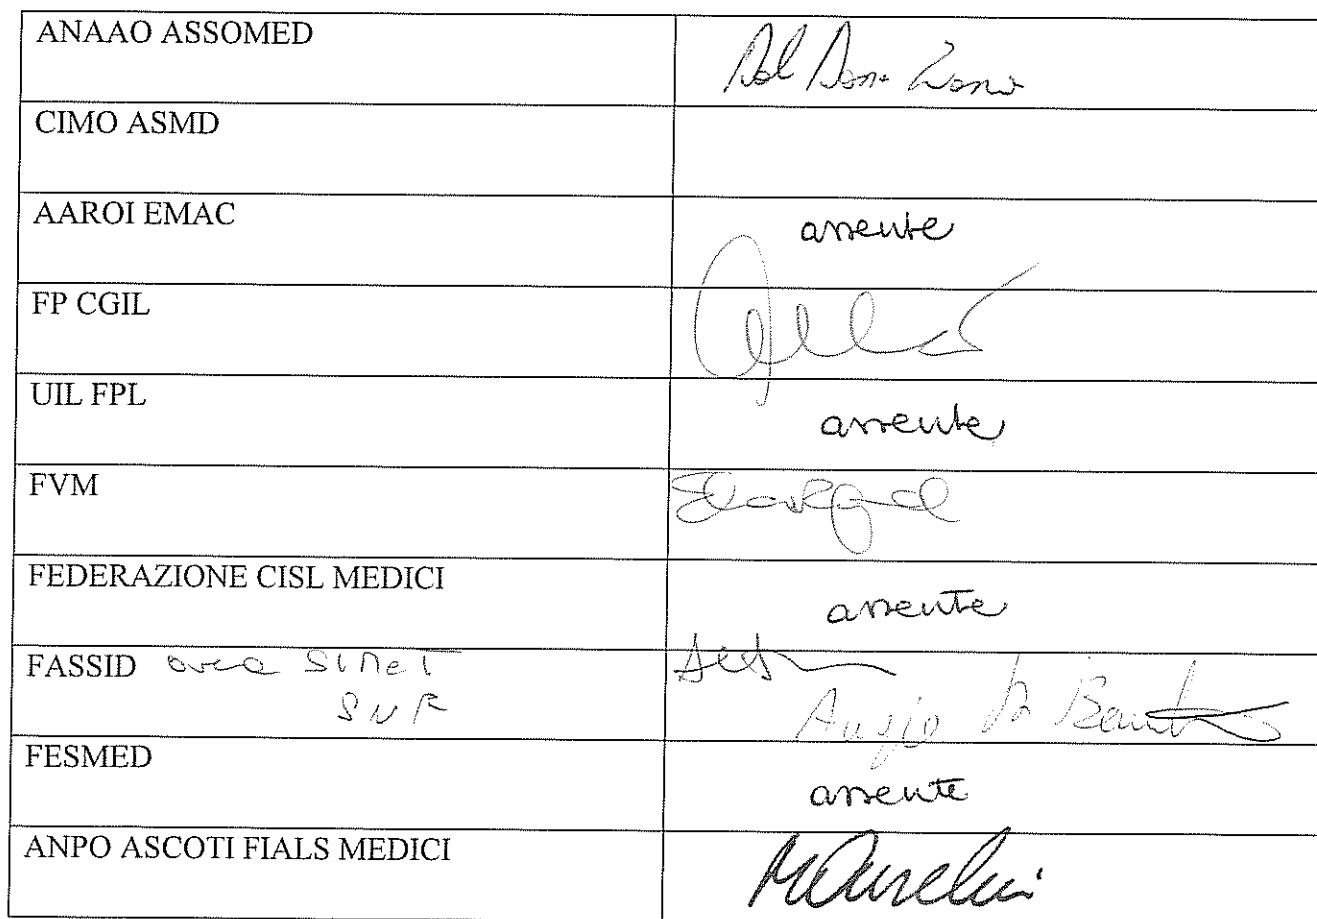 ANAAO ASSOMED
CIMO ASMD
AAROI EMAC assente
FP CGIL
UIL FPL assente
FVM
FEDERAZIONE CISL MEDICI assente
FASSID area SIMET
SNR
FESMED assente
ANPO ASCOTI FIALS MEDICI